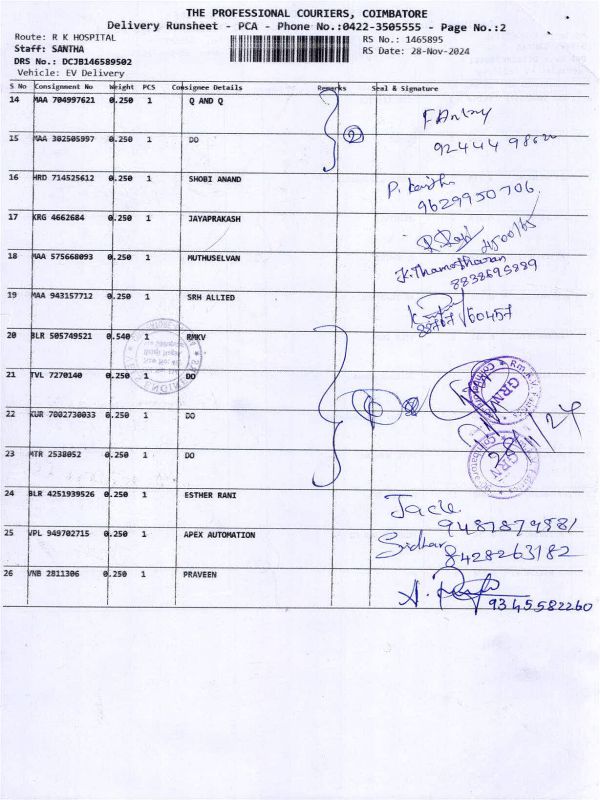 THE PROFESSIONAL COURIERS, COIMBATORE
Delivery Runsheet - PCA - Phone No.:0422-3505555 - Page No.:2
Route: R K HOSPITAL
RS No.: 1465895
Staff: SANTHA
RS Date: 28-Nov-2024
DRS No.: DCJB146589502
Vehicle: EV Delivery
S No Consignment No Weight PCS Consignee Details Remarks Seal & Signature
14 MAA 704997621 0.250 1 Q AND Q
15 MAA 382505997 0.250 1 DO 2
16 HRD 714525612 0.250 1 SHOBI ANAND
9629950706
17 KRG 4662684 0.250 1 JAYAPRAKASH
18 MAA 575668093 0.250 1 MUTHUSELVAN K.Thamotharan
8838695889
19 MAA 943157712 0.250 1 SRH ALLIED
20 BLR 505749521 0.540 1 RMKV
21 TVL 7270140 0.250 1 DO
GRN
22 KUR 7002730033 0.250 1 DO
28/11/24
23 MTR 2538052 0.250 1 DO
GRN
24 BLR 4251939526 0.250 1 ESTHER RANI
25 VPL 949702715 0.250 1 APEX AUTOMATION Sridhar
8428263182
26 VNB 2811306 0.250 1 PRAVEEN
9345582260